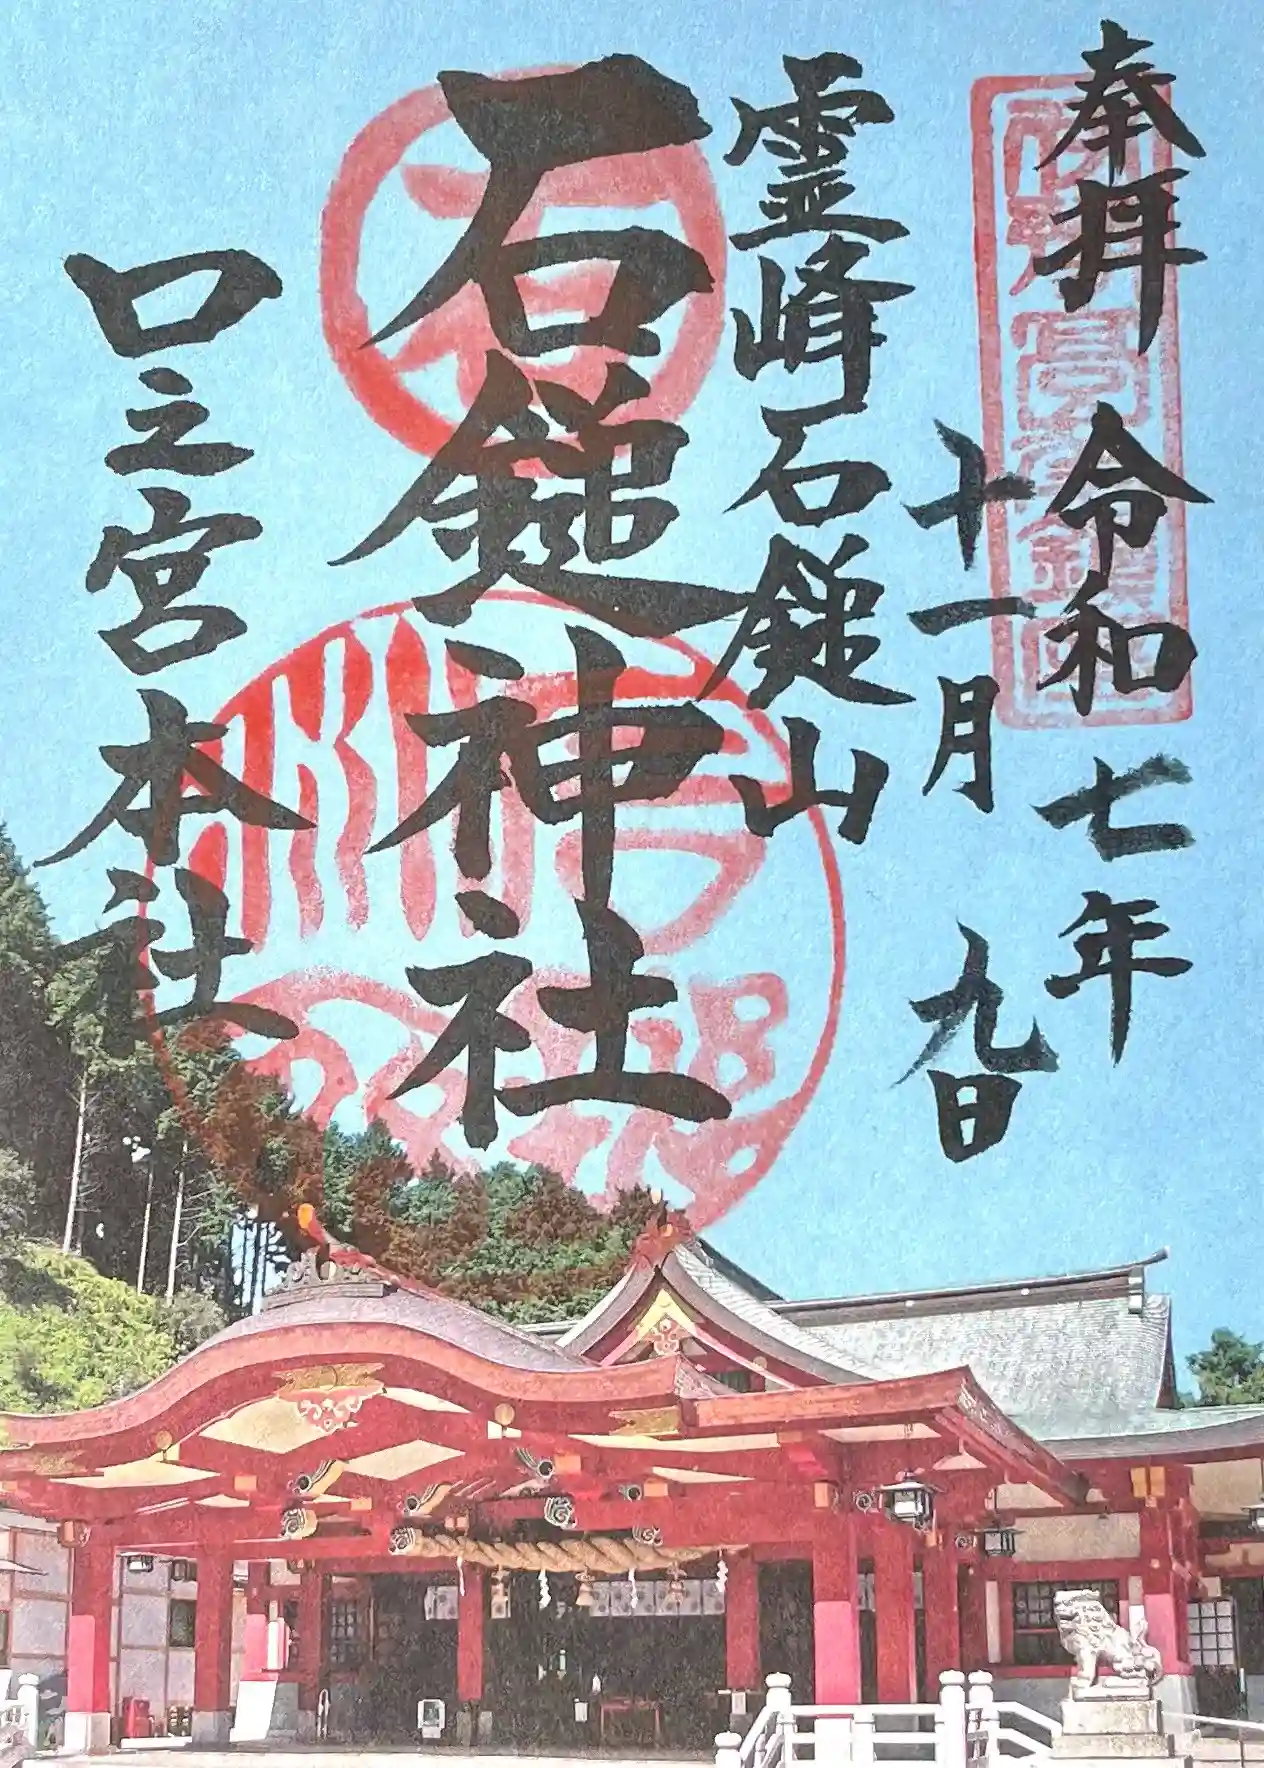 奉拝 令和七年
十一月九日
霊峰石鎚山
石鎚神社
口之宮本社